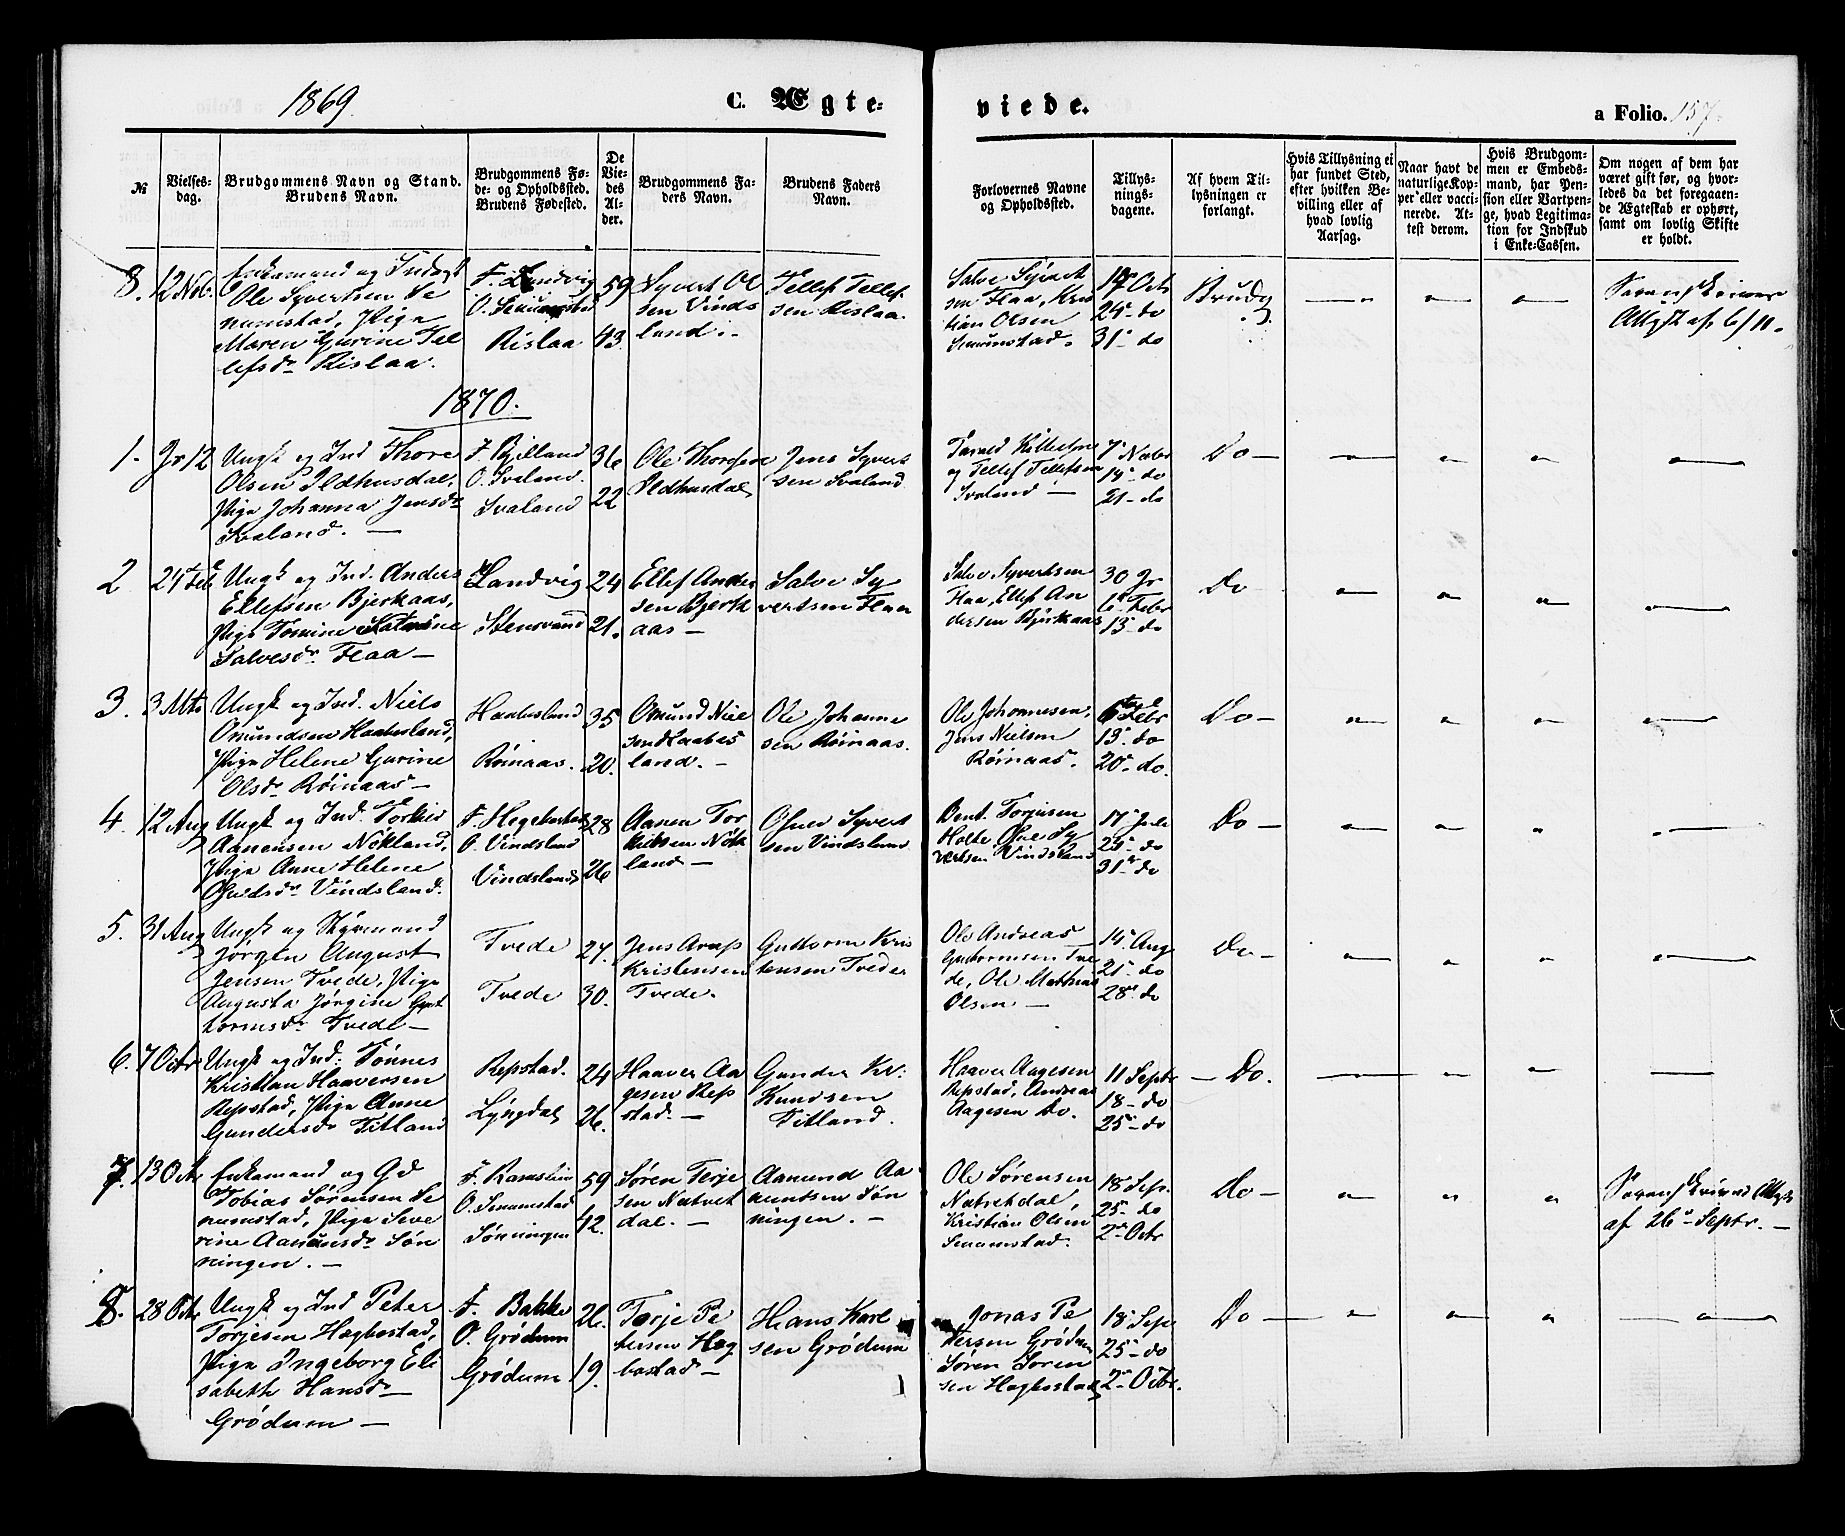 1869.
C. Ægte-
viede.
a Folio. 157.
№
Vielses-
dag.
Brudgommens Navn og Stand.
Brudens Navn.
Brudgommens Fø-
de- og Opholdssted.
Brudens Fødested.
De
Vie-
des
Al-
der.
Brudgommens Fa-
ders Navn.
Brudens Faders
Navn.
Forlovernes Navne
og Opholdssted.
Tillys-
nings-
dagene.
Af hvem Til-
lysningen er
forlangt.
Hvis Tillysning ei
har fundet Sted,
efter hvilken Be-
villing eller af
hvad lovlig
Aarsag.
Naar havt de
naturlige Kop-
per eller vacci-
nerede. At-
test derom.
Hvis Brudgom-
men er Embeds-
mand, har Pen-
sion eller Vartpen-
ge, hvad Legitima-
tion for Indskud
i Enke-Cassen.
Om nogen af dem har
været gift før, og hvor-
ledes da det foregaaen-
de Ægteskab er ophørt,
samt om lovlig Skifte
er holdt.
8. 12 Nob.
Enkemand og Inderst
Ole Syvertsen Se
numstad, Pige
Maren Gurine Tel
lefsdr Rislaa.
F. Landvig
O. Senumstad
Rislaa
59
43.
Syvert Ol
sen Vinds
land.
Tellef Tellef
sen Rislaa.
Salve Syvert
sen Flaa, Kris
tian Olsen
Senumstad.
17 Octr
24- do
31- do
Brudg.
Attest af 6/11.
1870.
1. Jr 12
Ungk og Ind Thore
Olsen Ildhusdal,
Pige Johanna Jensdr
Svaland. —
F. Bjelland
O. Svaland.
Svaland
36
22
Ole Thorsen
Ildhusdal
Jens Syvert
sen Svaland
og Tellef Tellefsen
Svaland —
7- Nobr
14- do
21- do
Do —
2 24 Feb
Ungk og Ind. Anders
Ellefsen Bjerkaas,
Pige Tomine Katrine
Salvesdr Flaa —
Landvig
Stensvand
24
21.
Ellef Ander
sen Bjerk
aas —
Salve Sy
vertsen Flaa
Salve Syvertsen
Flaa, Ellef An
dersen Bjerkaas
30 Jr
6- Febr
13- do
Do
3. 3 Mts
Ungk og Ind. Niels
Omundsen Haabesland,
Pige Helene Gurine
Olsdr Røinaas —
Haabesland
Røinaas.
35
20.
Omund Niel
sen Haabes
land. —
Ole Johanne
sen Røinaas.
Ole Johannesen,
Jens Nielsen
Røinaas.
6 Febr
13- do
20- do.
Do —
4. 12 Aug
Ungk og Ind. Torkel
Aanensen Nökland,
Pige Anne Helene
Vindsland.
F. Hegebostad
O. Vindsland
Vindsland
28
26
Aanen Tor
kildsen Nök
land —
Syvert
sen Vindsland
Bent Torjusen
Holte, Sy
vertsen Vindsland
17- Juli
24- do
31- do
Do —
5. 31 Aug
Ungk og Styrmand
Jörgen August
Jensen Tvede, Pige
Augusta Jörgine Gut
tormsdr Tvede —
Tvede
Tvede
27.
30.
Jens Arup
Kristensen
Tvede.
Guttorm Kris
tensen Tvede
Ole Andreas
Guttormsen Tve
de, Ole Mathias
Olsen —
14- Aug
21- do
28- do
Do —
6. 7 Octr
Ungk og Ind: Tönnes
Kristian Haaversen
Repstad, Pige Anne
Gundersdr Titland
Repstad.
Lyngdal
24
26.
Haaver Aa
gesen Rep
stad. —
Gunder Kr.
Knudsen
Titland.
Haaver Aagesen
Repstad, Andreas
Aagesen Do.
11 Septr
18- do
25- do
— Do.
7. 13 Octr
Enkemand og Gd
Tobias Sörensen Se
numstad, Pige Seve
rine Aanunsdr Sön
ningen. —
O. Senumstad
Sönningen
59
42.
Sören Terje
sen Natvet
dal. —
Aamund Aa
nuntsen Sön
ningen. —
Ole Sörensen
Natvetdal
Kristian Olsen
Senumstad.
18 Sep.
25- do
2- Octr
Do —
af 26- Septr. —
8. 28 Octr
Ungk og Ind Peter
Torjesen Hægbostad,
Pige Ingeborg Eli
sabeth Hansdr
Grödum —
F. Bakke
O. Grödum
Grödum
26.
19.
Terje Pe
tersen Hæg
bostad —
Hans Karl
sen Grödum
Jonas Pe
tersen Grödum
Sören Sören
sen Hegbostad
18- Sep
25- do
2- Octr.
Do —